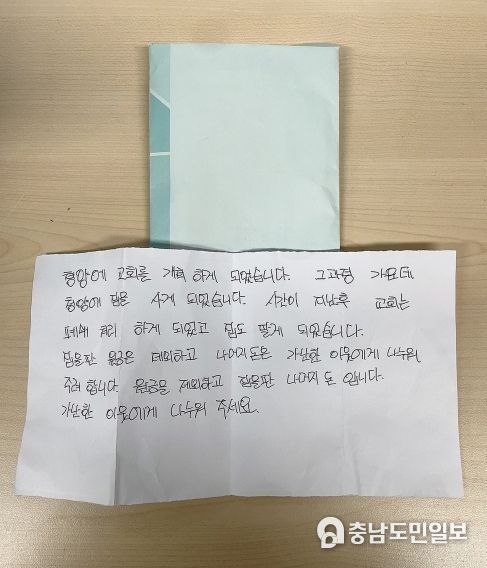 청양에 교회를 개척 하게 되었습니다. 그과정 가운데
청양에 집을 사게 되었습니다. 시간이 지난후 교회는
폐쇄 처리 하게 되었고 집도 팔게 되었습니다.
집을판 원금은 제외하고 나머지 돈은 가난한 이웃에게 나누워
주려 합니다. 원금을 제외하고 집을판 나머지 돈 입니다.
가난한 이웃에게 나누워 주세요.
충남도민일보